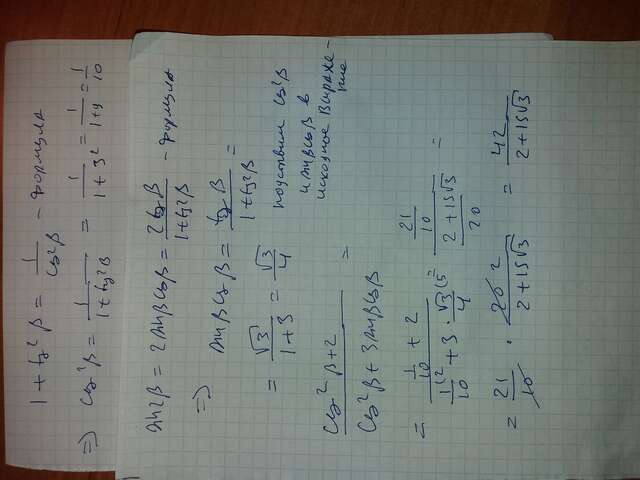 1 + tg²β = 1/cos²β - формула
⇒ cos²β = 1/(1+tg²β) = 1/(1+3²) = 1/(1+9) = 1/10
sin2β = 2sinβcosβ = 2tgβ/(1+tg²β) - формула
⇒ sinβcosβ = tgβ/(1+tg²β) =
= √3/(1+3) = √3/4
подставим cos²β
и sinβcosβ в
исходное выраже-
ние
(cos²β+2)/(cos²β+3sinβcosβ) =
= (1/10 + 2)/(1/10 + 3·√3/4) = (21/10)/((2+15√3)/20) =
= 21/10 · 20/(2+15√3) = 42/(2+15√3)